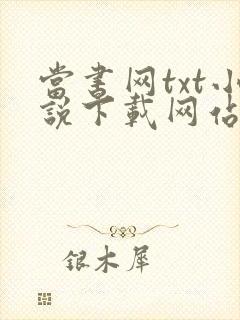 當書网txt小
說下載网佔
銀木犀